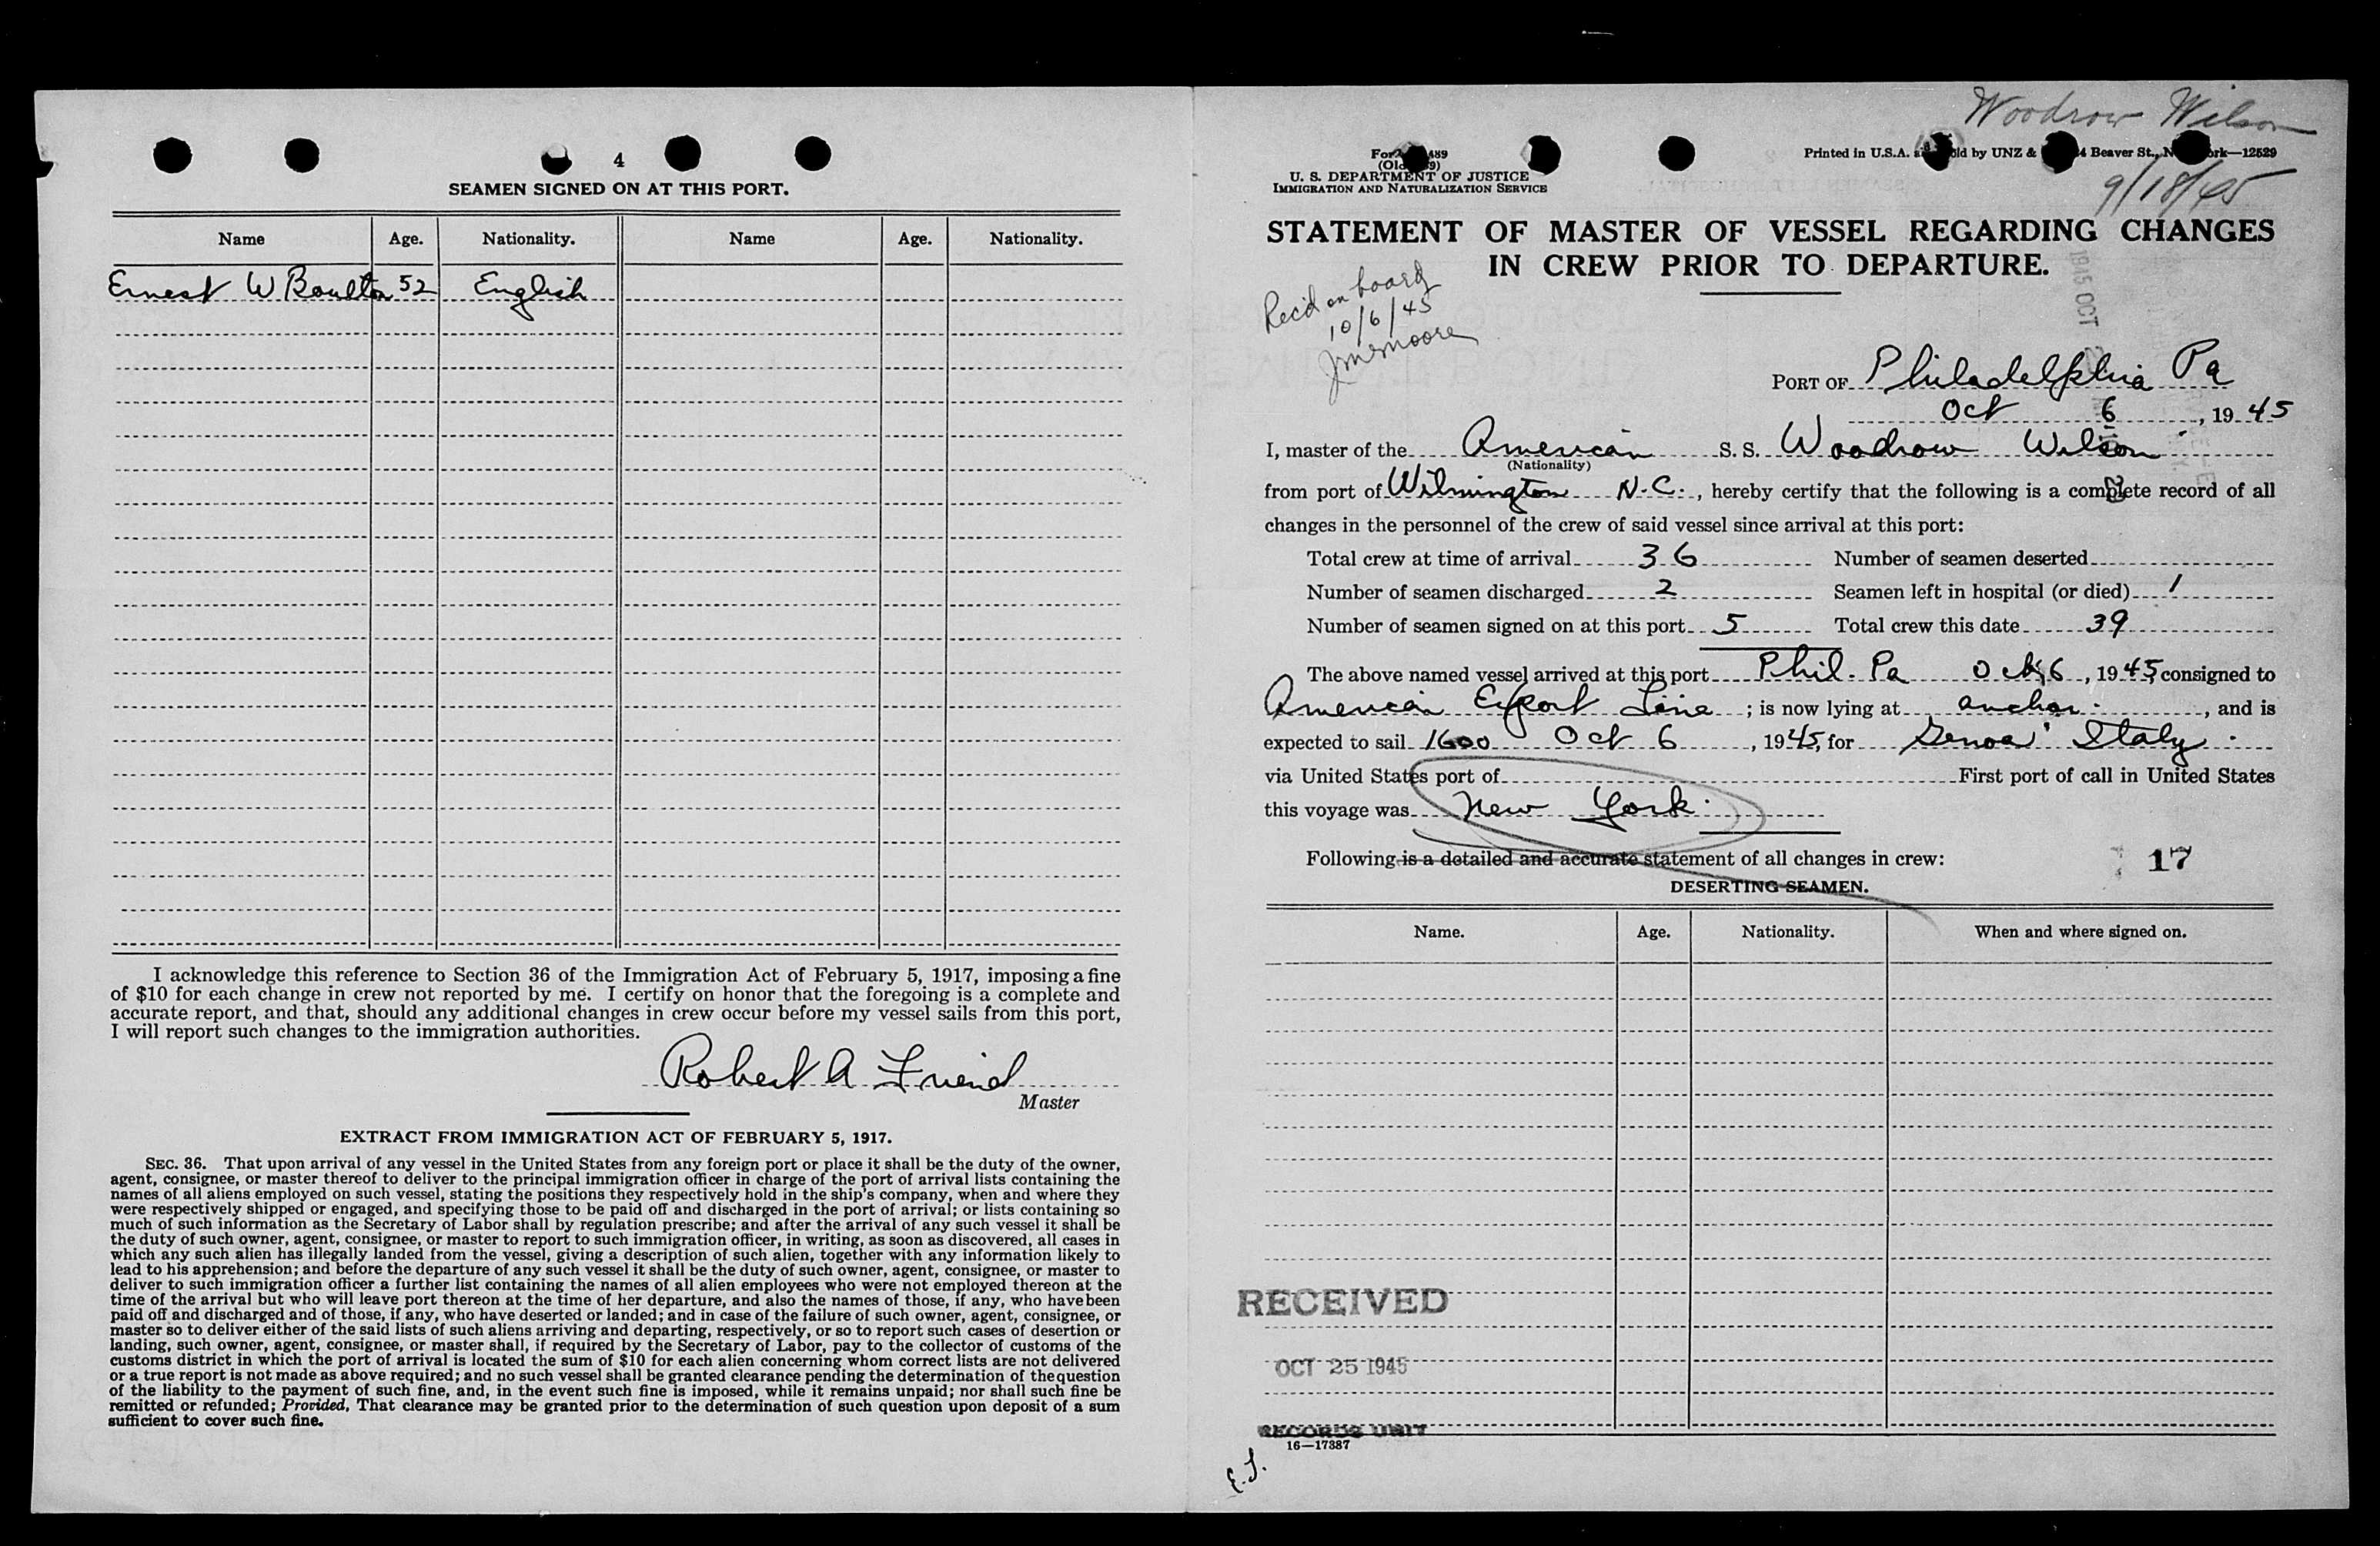 4
SEAMEN SIGNED ON AT THIS PORT.
Name Age. Nationality. Name Age. Nationality.
Ernest W Boulton 52 English
I acknowledge this reference to Section 36 of the Immigration Act of February 5, 1917, imposing a fine
of $10 for each change in crew not reported by me. I certify on honor that the foregoing is a complete and
accurate report, and that, should any additional changes in crew occur before my vessel sails from this port,
I will report such changes to the immigration authorities.
Robert A Friend
Master
EXTRACT FROM IMMIGRATION ACT OF FEBRUARY 5, 1917.
SEC. 36. That upon arrival of any vessel in the United States from any foreign port or place it shall be the duty of the owner,
agent, consignee, or master thereof to deliver to the principal immigration officer in charge of the port of arrival lists containing the
names of all aliens employed on such vessel, stating the positions they respectively hold in the ship's company, when and where they
were respectively shipped or engaged, and specifying those to be paid off and discharged in the port of arrival; or lists containing so
much of such information as the Secretary of Labor shall by regulation prescribe; and after the arrival of any such vessel it shall be
the duty of such owner, agent, consignee, or master to report to such immigration officer, in writing, as soon as discovered, all cases in
which any such alien has illegally landed from the vessel, giving a description of such alien, together with any information likely to
lead to his apprehension; and before the departure of any such vessel it shall be the duty of such owner, agent, consignee, or master to
deliver to such immigration officer a further list containing the names of all alien employees who were not employed thereon at the
time of the arrival but who will leave port thereon at the time of her departure, and also the names of those, if any, who have been
paid off and discharged and of those, if any, who have deserted or landed; and in case of the failure of such owner, agent, consignee, or
master so to deliver either of the said lists of such aliens arriving and departing, respectively, or so to report such cases of desertion or
landing, such owner, agent, consignee, or master shall, if required by the Secretary of Labor, pay to the collector of customs of the
customs district in which the port of arrival is located the sum of $10 for each alien concerning whom correct lists are not delivered
or a true report is not made as above required; and no such vessel shall be granted clearance pending the determination of the question
of the liability to the payment of such fine, and, in the event such fine is imposed, while it remains unpaid; nor shall such fine be
remitted or refunded; Provided, That clearance may be granted prior to the determination of such question upon deposit of a sum
sufficient to cover such fine.
Woodrow Wilson
Printed in U.S.A. by UNZ & Beaver St., —12529
9/18/45
U. S. DEPARTMENT OF JUSTICE
IMMIGRATION AND NATURALIZATION SERVICE
STATEMENT OF MASTER OF VESSEL REGARDING CHANGES
IN CREW PRIOR TO DEPARTURE.
Rec'd on board
10/6/45
1945 OCT
PORT OF Philadelphia Pa
Oct 6, 1945
I, master of the American S. S. Woodrow Wilson
(Nationality)
from port of Wilmington N.C., hereby certify that the following is a complete record of all
changes in the personnel of the crew of said vessel since arrival at this port:
Total crew at time of arrival 36 Number of seamen deserted
Number of seamen discharged 2 Seamen left in hospital (or died) 1
Number of seamen signed on at this port 5 Total crew this date 39
The above named vessel arrived at this port Phil. Pa Oct 6, 1945, consigned to
American Export Line; is now lying at anchor, and is
expected to sail 1600 Oct 6, 1945, for Genoa Italy.
via United States port of First port of call in United States
this voyage was New York.
Following is a detailed and accurate statement of all changes in crew:
17
DESERTING SEAMEN.
Name. Age. Nationality. When and where signed on.
RECEIVED
OCT 25 1945
RECORDS UNIT
16—17387